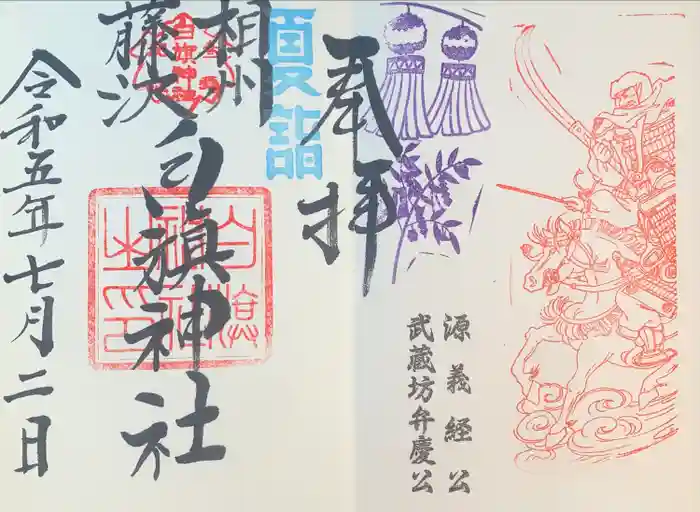 源義経公
武蔵坊弁慶公
奉拝
夏詣
相州
藤沢
白旗神社
白旗神社之印
令和五年七月二日